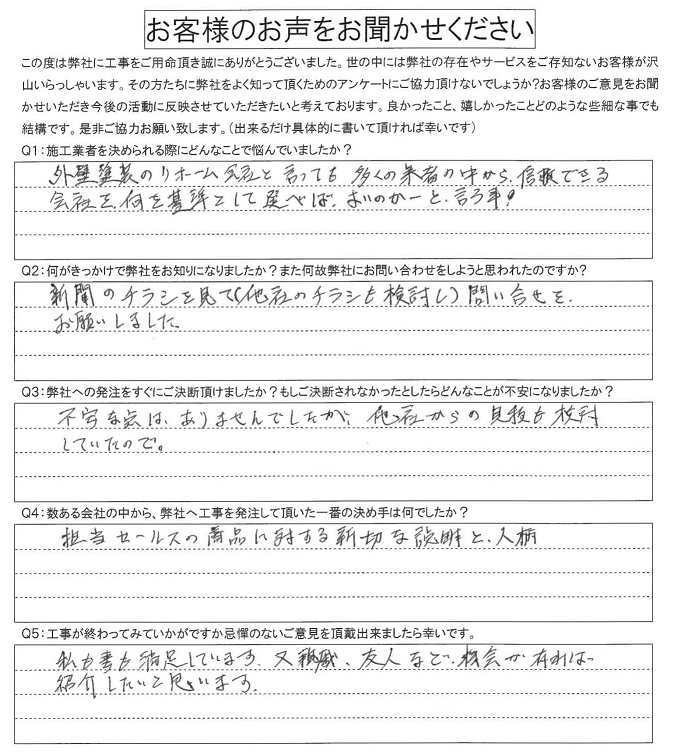 お客様のお声をお聞かせください
この度は弊社に工事をご用命頂き誠にありがとうございました。世の中には弊社の存在やサービスをご存知ないお客様が沢
山いらっしゃいます。その方たちに弊社をよく知って頂くためのアンケートにご協力頂けないでしょうか?お客様のご意見をお聞
かせいただき今後の活動に反映させていただきたいと考えております。良かったこと、嬉しかったことどのような些細な事でも
結構です。是非ご協力お願い致します。(出来るだけ具体的に書いて頂ければ幸いです)
Q1:施工業者を決められる際にどんなことで悩んでいましたか?
外壁塗装のリホーム会社と言っても 多くの業者の中から、信頼できる
会社を、何を基準として選べば、よいのかーと、言う事!
Q2:何がきっかけで弊社をお知りになりましたか?また何故弊社にお問い合わせをしようと思われたのですか?
新聞のチラシを見て(他社のチラシも検討し)問い合せを、
お願いしました。
Q3:弊社への発注をすぐにご決断頂けましたか?もしご決断されなかったとしたらどんなことが不安になりましたか?
不安な点は、ありませんでしたが、他社からの見積も検討
していたので。
Q4:数ある会社の中から、弊社へ工事を発注して頂いた一番の決め手は何でしたか?
担当セールスの商品に対する親切な説明と、人柄
Q5:工事が終わってみていかがですか忌憚のないご意見を頂戴出来ましたら幸いです。
私も妻も満足しています。又親戚、友人など、機会が有れば
紹介したいと思います。